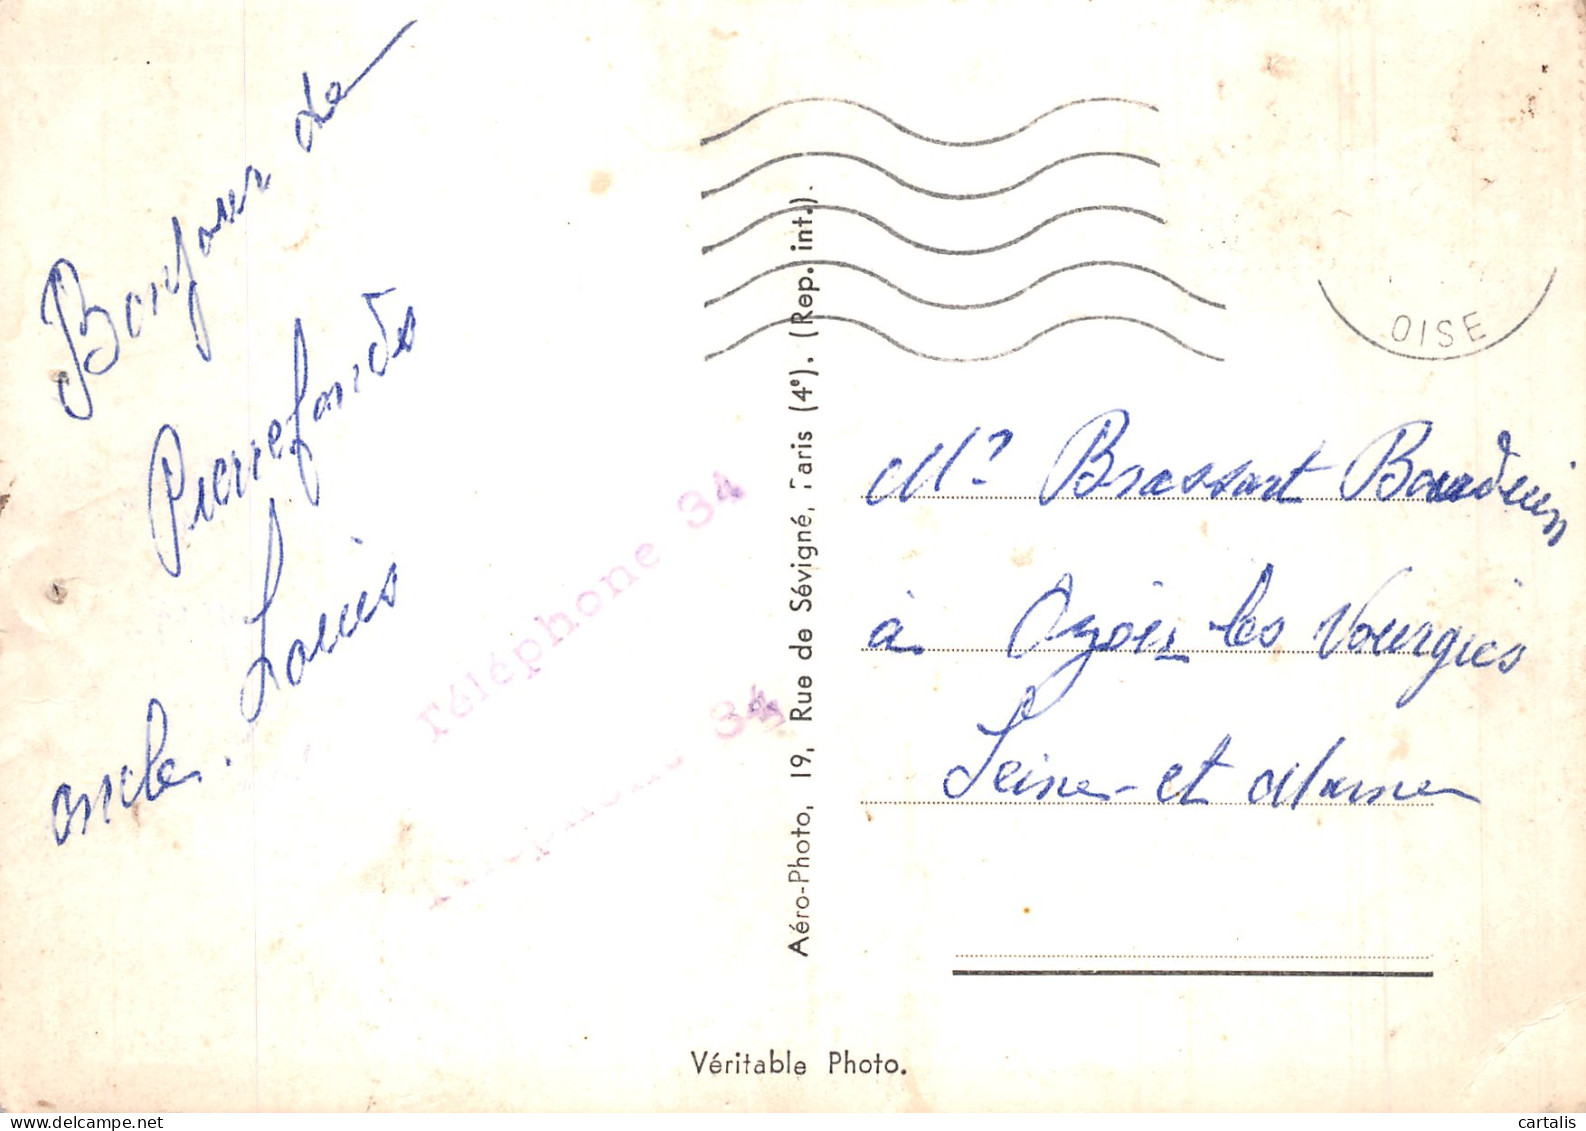 Bonjour de
Pierrefonds
oncle. Louis
Téléphone 34
34
Aéro-Photo, 19, Rue de Sévigné, Paris (4e). (Rep. int.).
OISE
Mr Brassart Baudouin
à Ozoir les Vourgies
Seine-et Marne
Véritable Photo.
cartalis